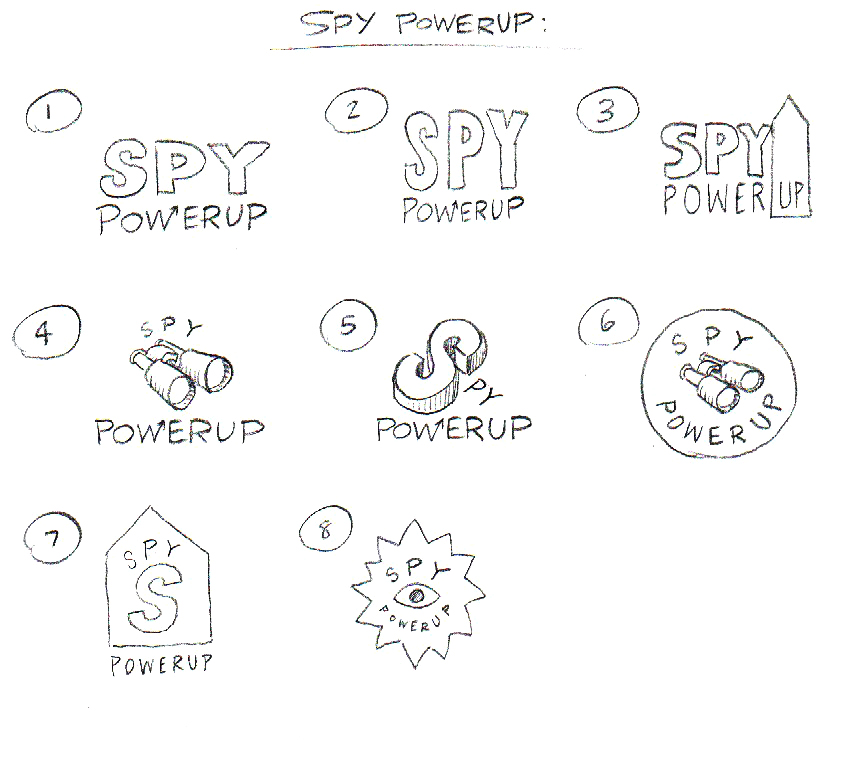 SPY POWERUP:
1
SPY
POWERUP
2
SPY
POWERUP
3
SPY
POWER UP
4
SPY
POWERUP
5
SPY
POWERUP
6
SPY
POWERUP
7
SPY
S
POWERUP
8
SPY
POWERUP